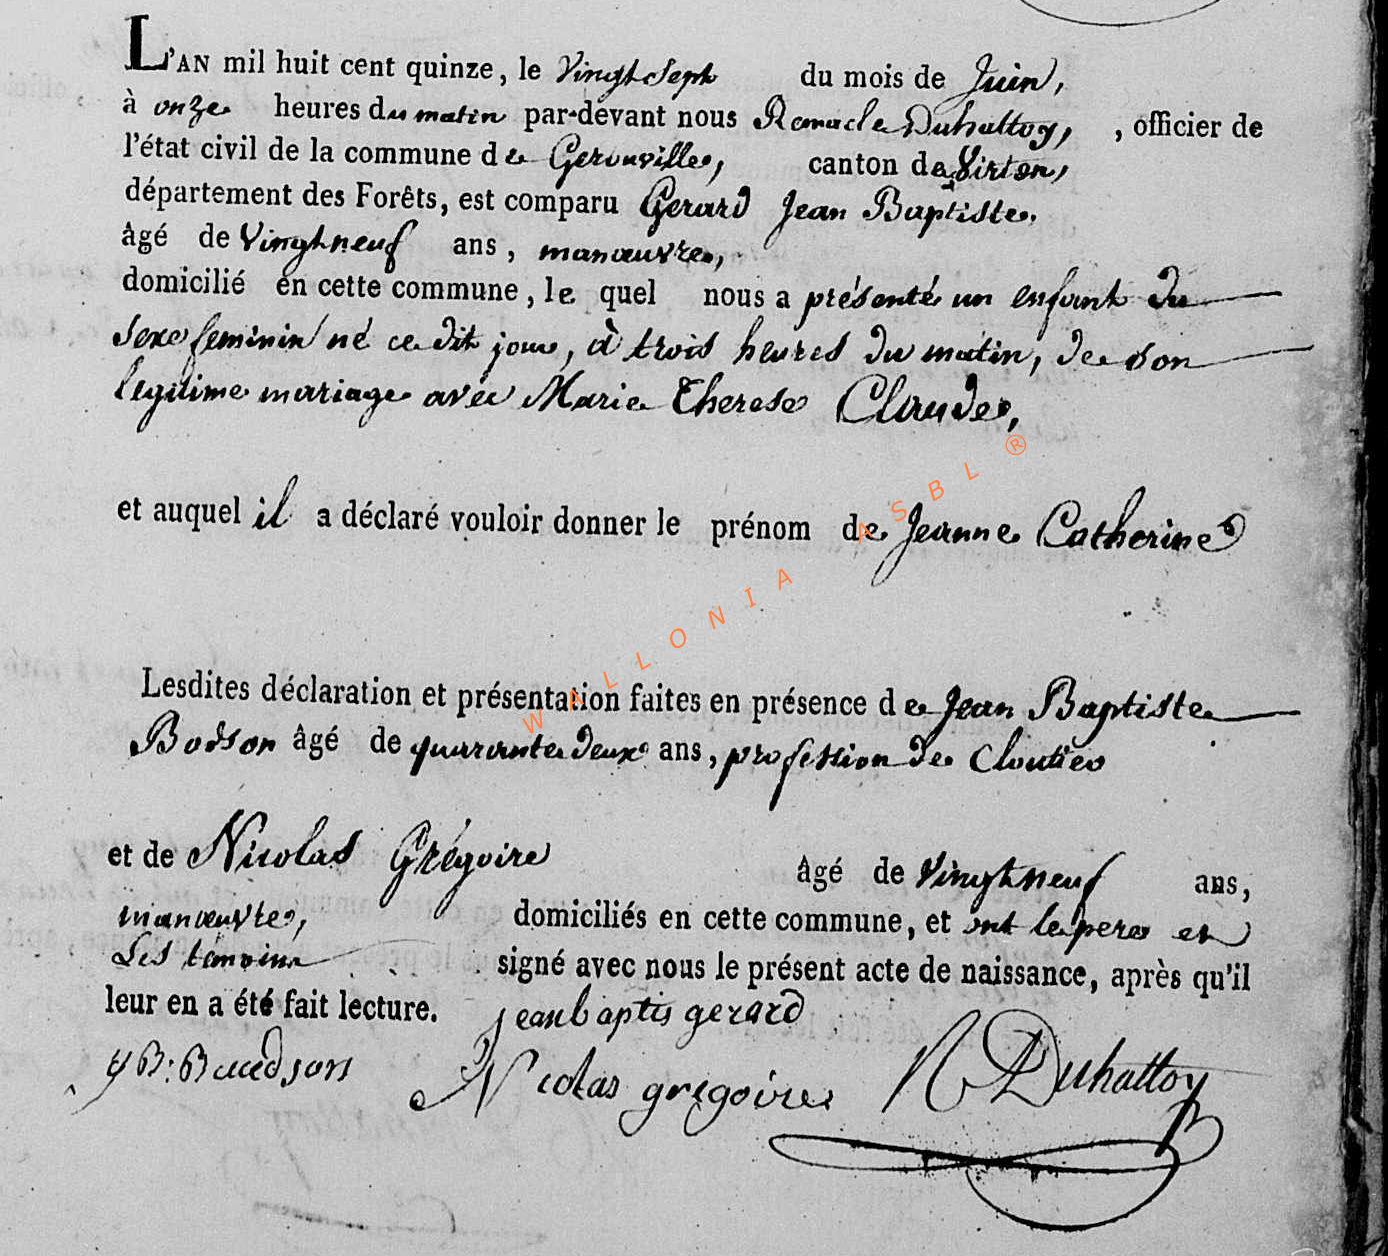 L'AN mil huit cent quinze, le Vingt Sept du mois de Juin,
à onze heures du matin par-devant nous Remacle Duhattoy, , officier de
l'état civil de la commune de Gerouville, canton de Virton,
département des Forêts, est comparu Gerard Jean Baptiste,
âgé de Vingt neuf ans, manœuvre,
domicilié en cette commune, le quel nous a présenté un enfant du
sexe feminin né ce dit jour, à trois heures du matin, de son
legitime mariage avec Marie Therese Claude,
et auquel il a déclaré vouloir donner le prénom de Jeanne Catherine
Lesdites déclaration et présentation faites en présence de Jean Baptiste
Bodson âgé de quarante deux ans, profession de Cloutier
et de Nicolas Grégoire âgé de Vingt neuf ans,
manœuvre, domiciliés en cette commune, et ont le pere et
Les temoins signé avec nous le présent acte de naissance, après qu'il
leur en a été fait lecture. jean baptis gerard
Nicolas gregoire R Duhattoy
WALLONIA ASBL ®